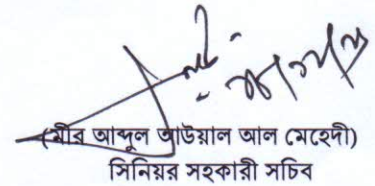 (মীর আব্দুল আউয়াল আল মেহেদী)
সিনিয়র সহকারী সচিব